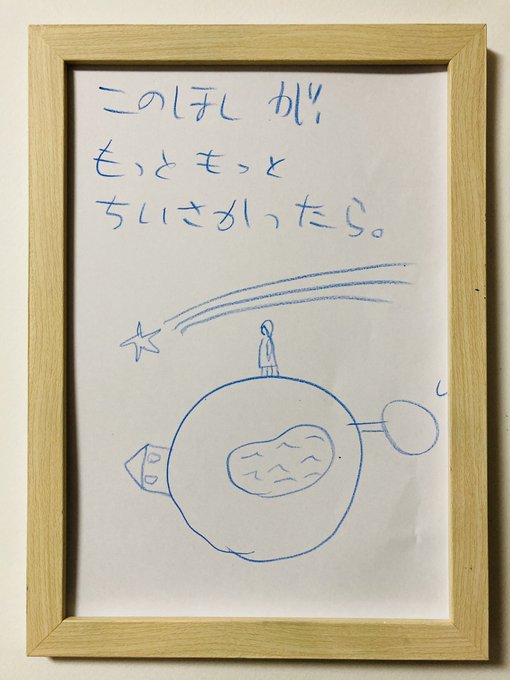 このほしが
もっともっと
ちいさかったら。